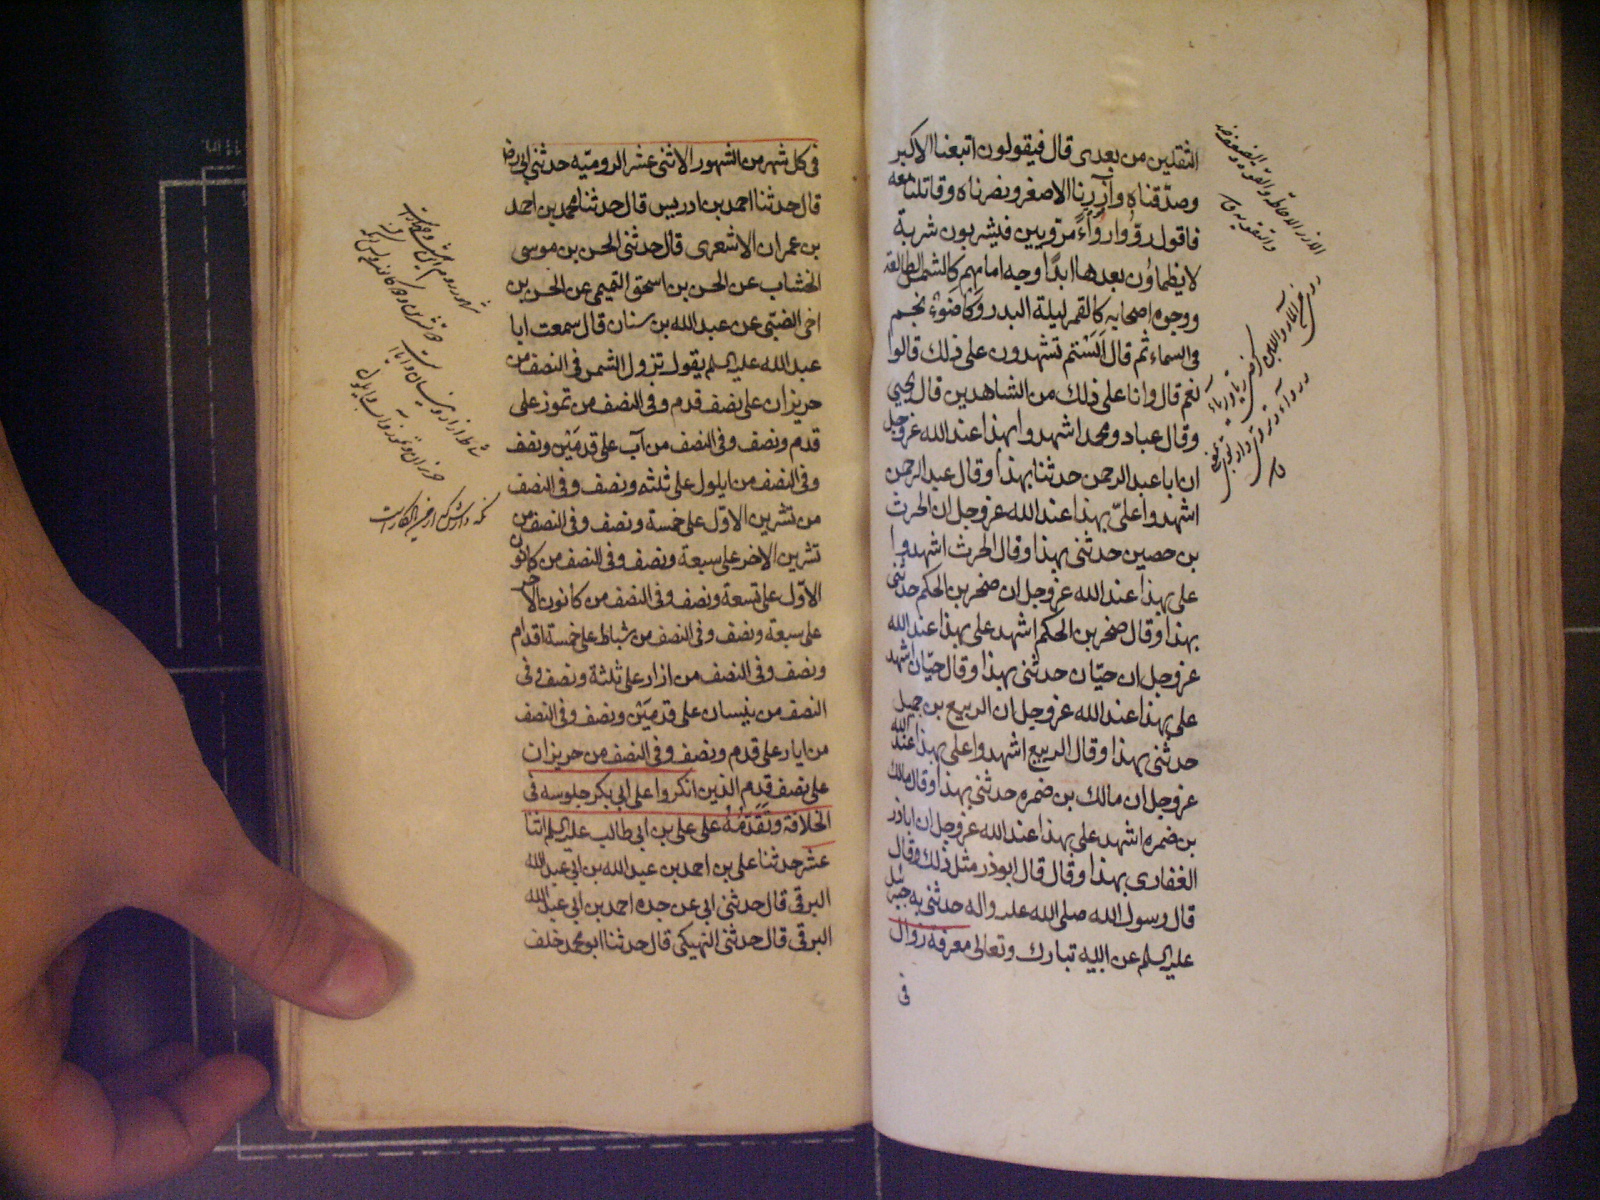 الثقلين من بعدى قال فيقولون اتبعنا الاكبر
وصدّقناه وآزرنا الاصغر ونصرناه وقاتلنا معه
فاقول ردّوا رواءً مرويين فيشربون شربة
لا يظماون بعدها ابدًا وجه امامهم كالشمس الطالعة
ووجوه اصحابه كالقمر ليلة البدر وكاضوء نجم
فى السماء ثم قال الستم تشهدون على ذلك قالوا
نعم قال وانا على ذلك من الشاهدين قال يحيى
وقال عباد ومحمد اشهدوا بهذا عند الله عز وجل
ان ابا عبد الرحمن حدثنا بهذا وقال عبد الرحمن
اشهدوا علىّ بهذا عند الله عز وجل ان الحرث
بن حصين حدثنى بهذا وقال الحرث اشهدوا
على بهذا عند الله عز وجل ان صخر بن الحكم حدثنى
بهذا وقال صخر بن الحكم اشهد على بهذا عند الله
عز وجل ان حيّان حدثنى بهذا وقال حيّان اشهد
على بهذا عند الله عز وجل ان الربيع بن جميل
حدثنى بهذا وقال الربيع اشهدوا على بهذا عند الله
عز وجل ان مالك بن ضمره حدثنى بهذا وقال مالك
بن ضمره اشهد على بهذا عند الله عز وجل ان اباذر
الغفارى بهذا وقال قال ابوذر مثل ذلك وقال
قال رسول الله صلى الله عليه واله حدثنى به جبرئيل
عليه السلم عن الله تبارك وتعالى معرفة زوال
فى
فى كل شهر من الشهور الاثنى عشر الروميّه حدثنى ابى رض
قال حدثنا احمد بن ادريس قال حدثنا محمد بن احمد
بن عمران الاشعرى قال حدثنى الحسن بن موسى
الخشاب عن الحسن بن اسحق التميمى عن الحسن بن
اخى الضبّى عن عبد الله بن سنان قال سمعت ابا
عبد الله عليه السلم يقول تزول الشمس فى النصف من
حزيران على نصف قدم وفى النصف من تموز على
قدم ونصف وفى النصف من آب على قدمين ونصف
وفى النصف من ايلول على ثلثه ونصف وفى النصف
من تشرين الاوّل على خمسة ونصف وفى النصف من
تشرين الاخر على سبعة ونصف وفى النصف من كانون
الاوّل على تسعة ونصف وفى النصف من كانون الاخر
على سبعة ونصف وفى النصف من شباط على خمسة اقدام
ونصف وفى النصف من ازار على ثلثة ونصف وفى
النصف من نيسان على قدمين ونصف وفى النصف
من ايار على قدم ونصف وفى النصف من حزيران
على نصف قدم الذين انكروا على ابى بكر جلوسه فى
الخلافة وتقدّمه على على بن ابى طالب عليه السلم اثنا
عشر حدثنا على بن احمد بن عبد الله بن ابى عبد الله
البرقى قال حدثنى ابى عن جده احمد بن ابى عبد الله
البرقى قال حدثنى النهيكى قال حدثنا ابو محمد خلف